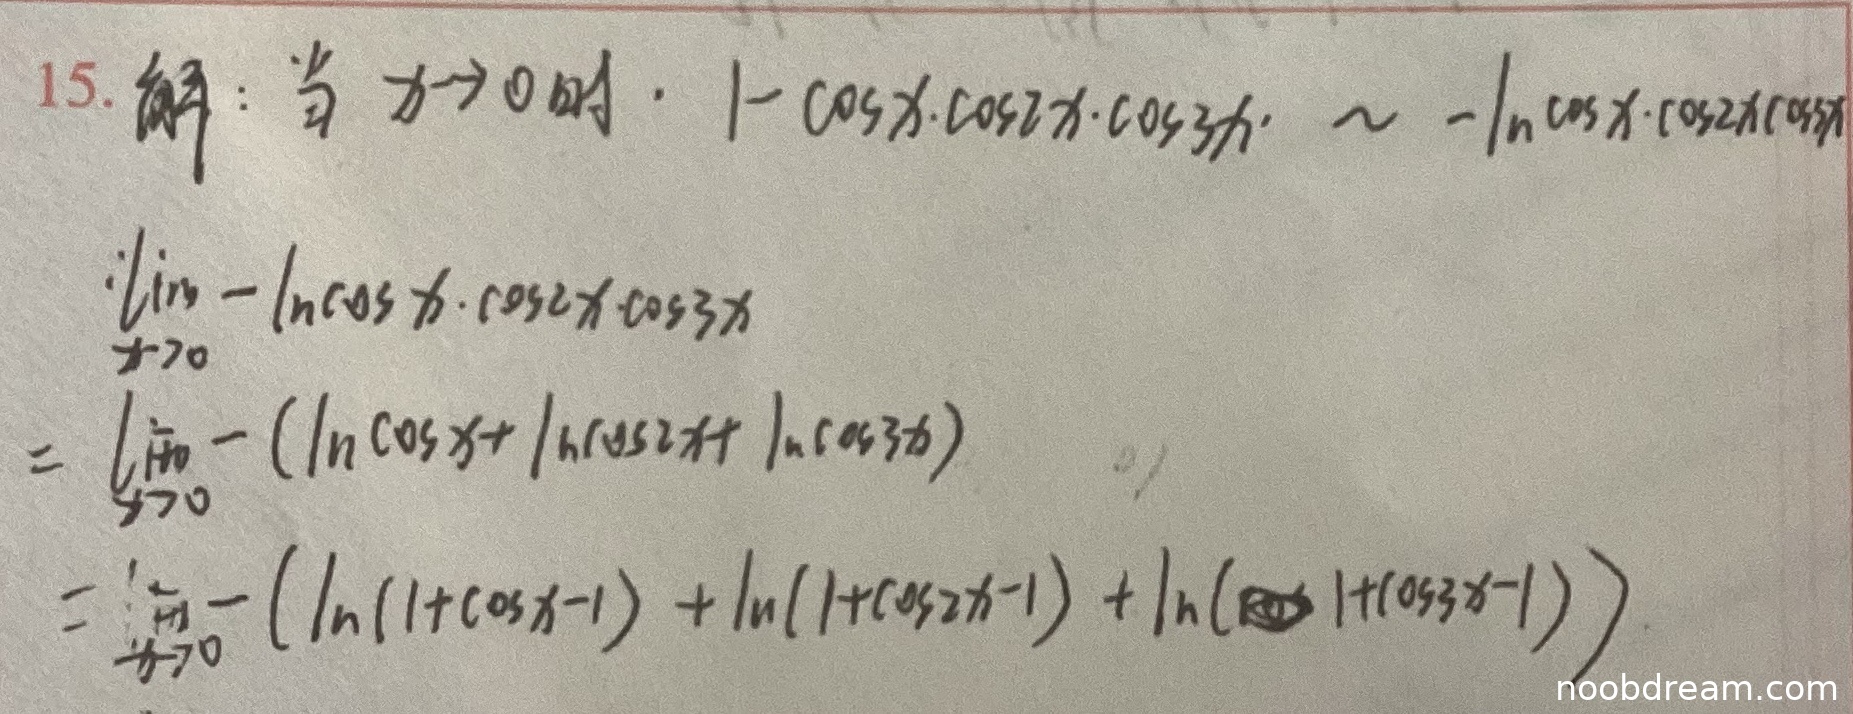 15. 解: 当 x→0时. 1-cosx·cos2x·cos3x. ~ -ln cosx·cos2xcos3x
lim -lncosx·cos2x·cos3x
x→0
= lim -(lncosx+lncos2x+lncos3x)
x→0
= lim -(ln(1+cosx-1)+ln(1+cos2x-1)+ln(1+cos3x-1))
x→0
noobdream.com